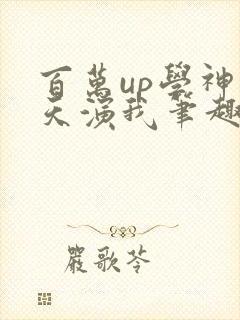 百萬up學神
天演我筆趣
嚴歌苓